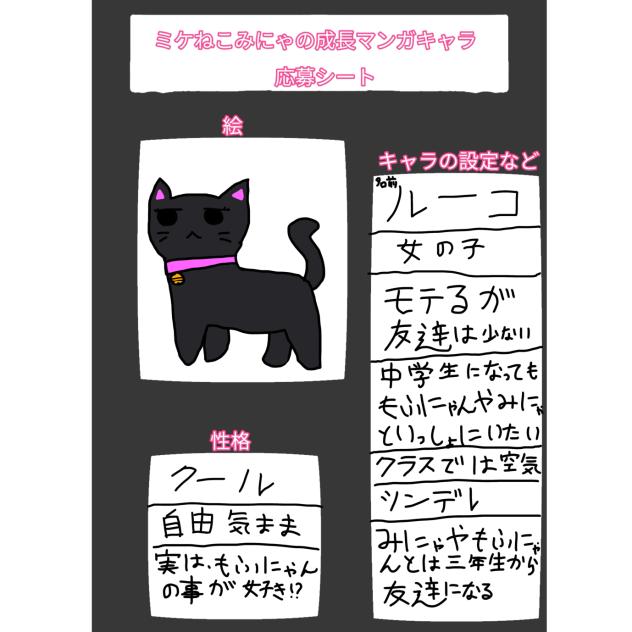 ミケねこみにゃの成長マンガキャラ
応募シート
絵
キャラの設定など
名前
ルーコ
女の子
モテるが
友達は少ない
中学生になっても
もふにゃんやみにゃ
といっしょにいたい
クラスでは空気
ツンデレ
みにゃやもふにゃ
んとは三年生から
友達になる
性格
クール
自由気まま
実は、もふにゃん
の事が好き!?